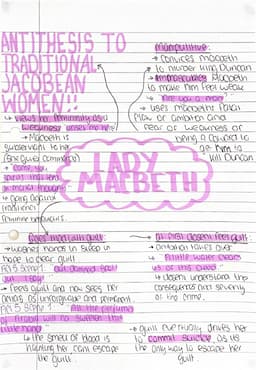 ANTITHESIS TO
TRADITIONAL
JACOBEAN
WOMEN:
→ views her femininity as a
weakness
→ Macbeth is
subservient to her
(she gives commands)
→ "come you
spirits that tend
on mortal thoughts"
→ going against
traditional
feminine
Manipulative:
→ convinces Macbeth
to murder King Duncan
→ emasculates Macbeth
to make him feel weak
→ "Are you a man?"
→ uses Macbeth's fatal
flaw of ambition and
fear of weakness or
being a coward to
get him to
kill Duncan
LADY
MACBETH
guilt
→ washes hands in sleep in
hope to clear guilt
Act 5 Scene 1 "Out damned spot
out I say"
→ feels guilt and now sees her
Act 5 Scene 1 "All the perfumes
of Arabia will not sweeten this
little hand"
→ the smell of blood is
haunting her can't escape
the guilt
→ At first doesn't feel guilt
→ ambition takes over
→ "A little water clears
us of this deed"
→ doesn't understand the
consequences and severity
of the crime.
→ guilt eventually drives her
to commit suicide as its
the only way to escape her
guilt.